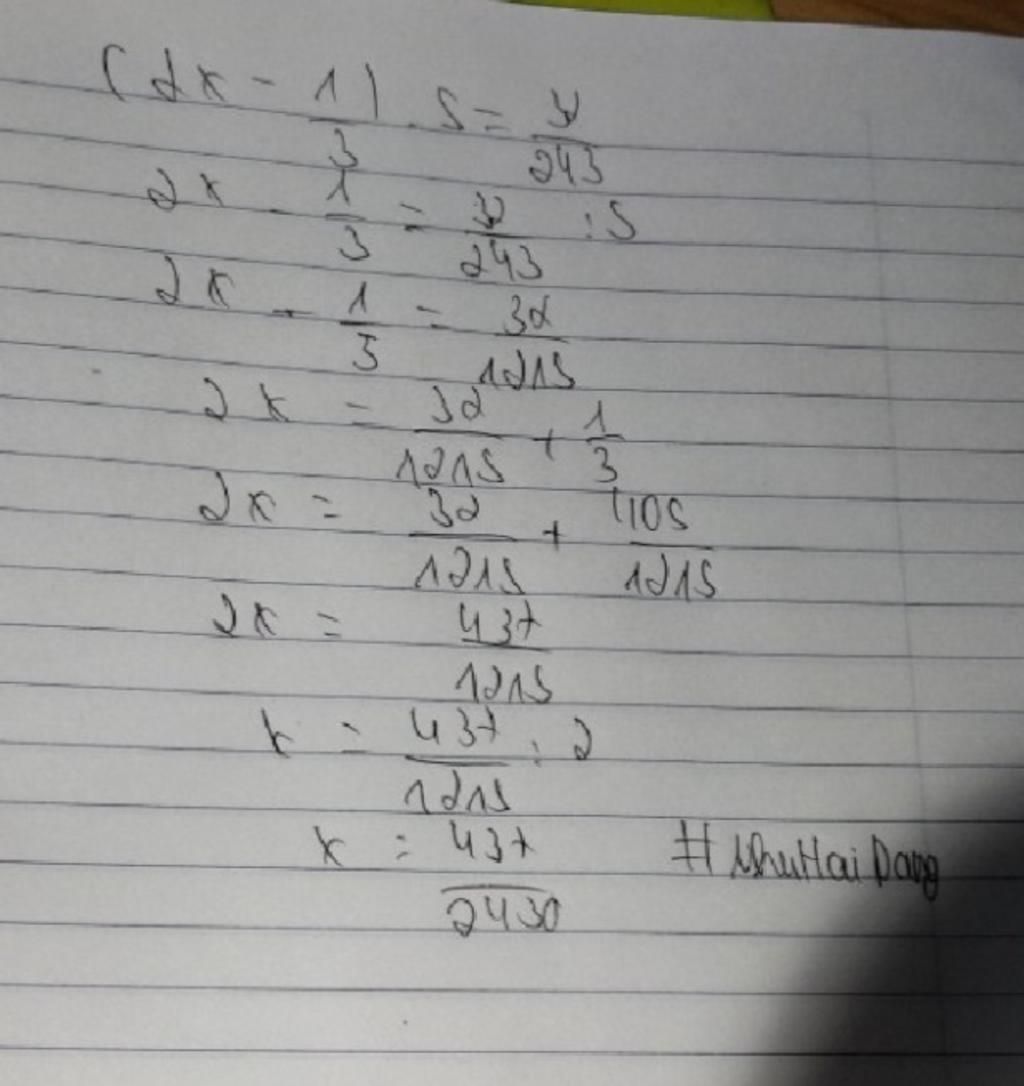 (2x - 1/3) . 5 = 32/243
2x - 1/3 = 32/243 : 5
2x - 1/3 = 32/1215
2x = 32/1215 + 1/3
2x = 32/1215 + 405/1215
2x = 437/1215
x = 437/1215 : 2
x = 437/2430 #NhuHaiDang